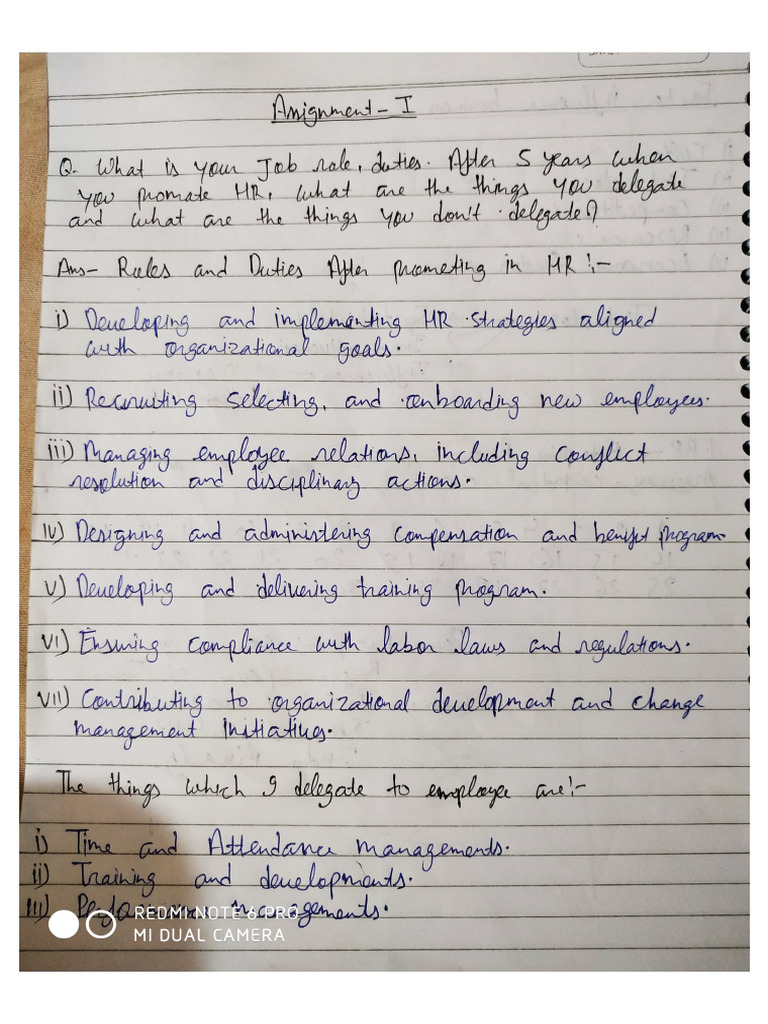 Assignment - I
Q. What is your Job role, duties. After 5 years when
you promate HR, what are the things you delegate
and what are the things you don't delegate?
Ans- Rules and Duties After promoting in HR :-
i) Developing and implementing HR strategies aligned
with organizational goals.
ii) Recruiting selecting, and onboarding new employees.
iii) Managing employee relations, including conflict
resolution and disciplinary actions.
iv) Designing and administering compensation and benefit program.
v) Developing and delivering training program.
vi) Ensuring compliance with labor laws and regulations.
vii) Contributing to organizational development and change
management initiatives.
The things which I delegate to employee are:-
i) Time and Attendance managements.
ii) Training and developments.
iii) managements.
REDMI NOTE 6 PRO
MI DUAL CAMERA